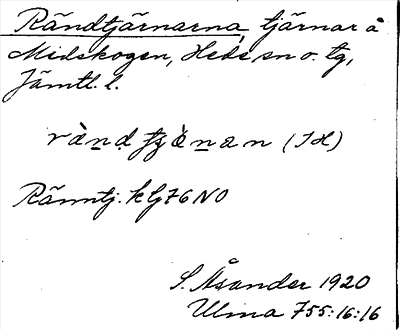 Rändtjärnarna, tjärnar å
Midskogen, Hede sn o. tg,
Jämtl. l.
rä̀nḍ tjä̀ṇan (IH)
Ränntj. k Lj76 NO
S. Åsander 1920
Ulma 755:16:16